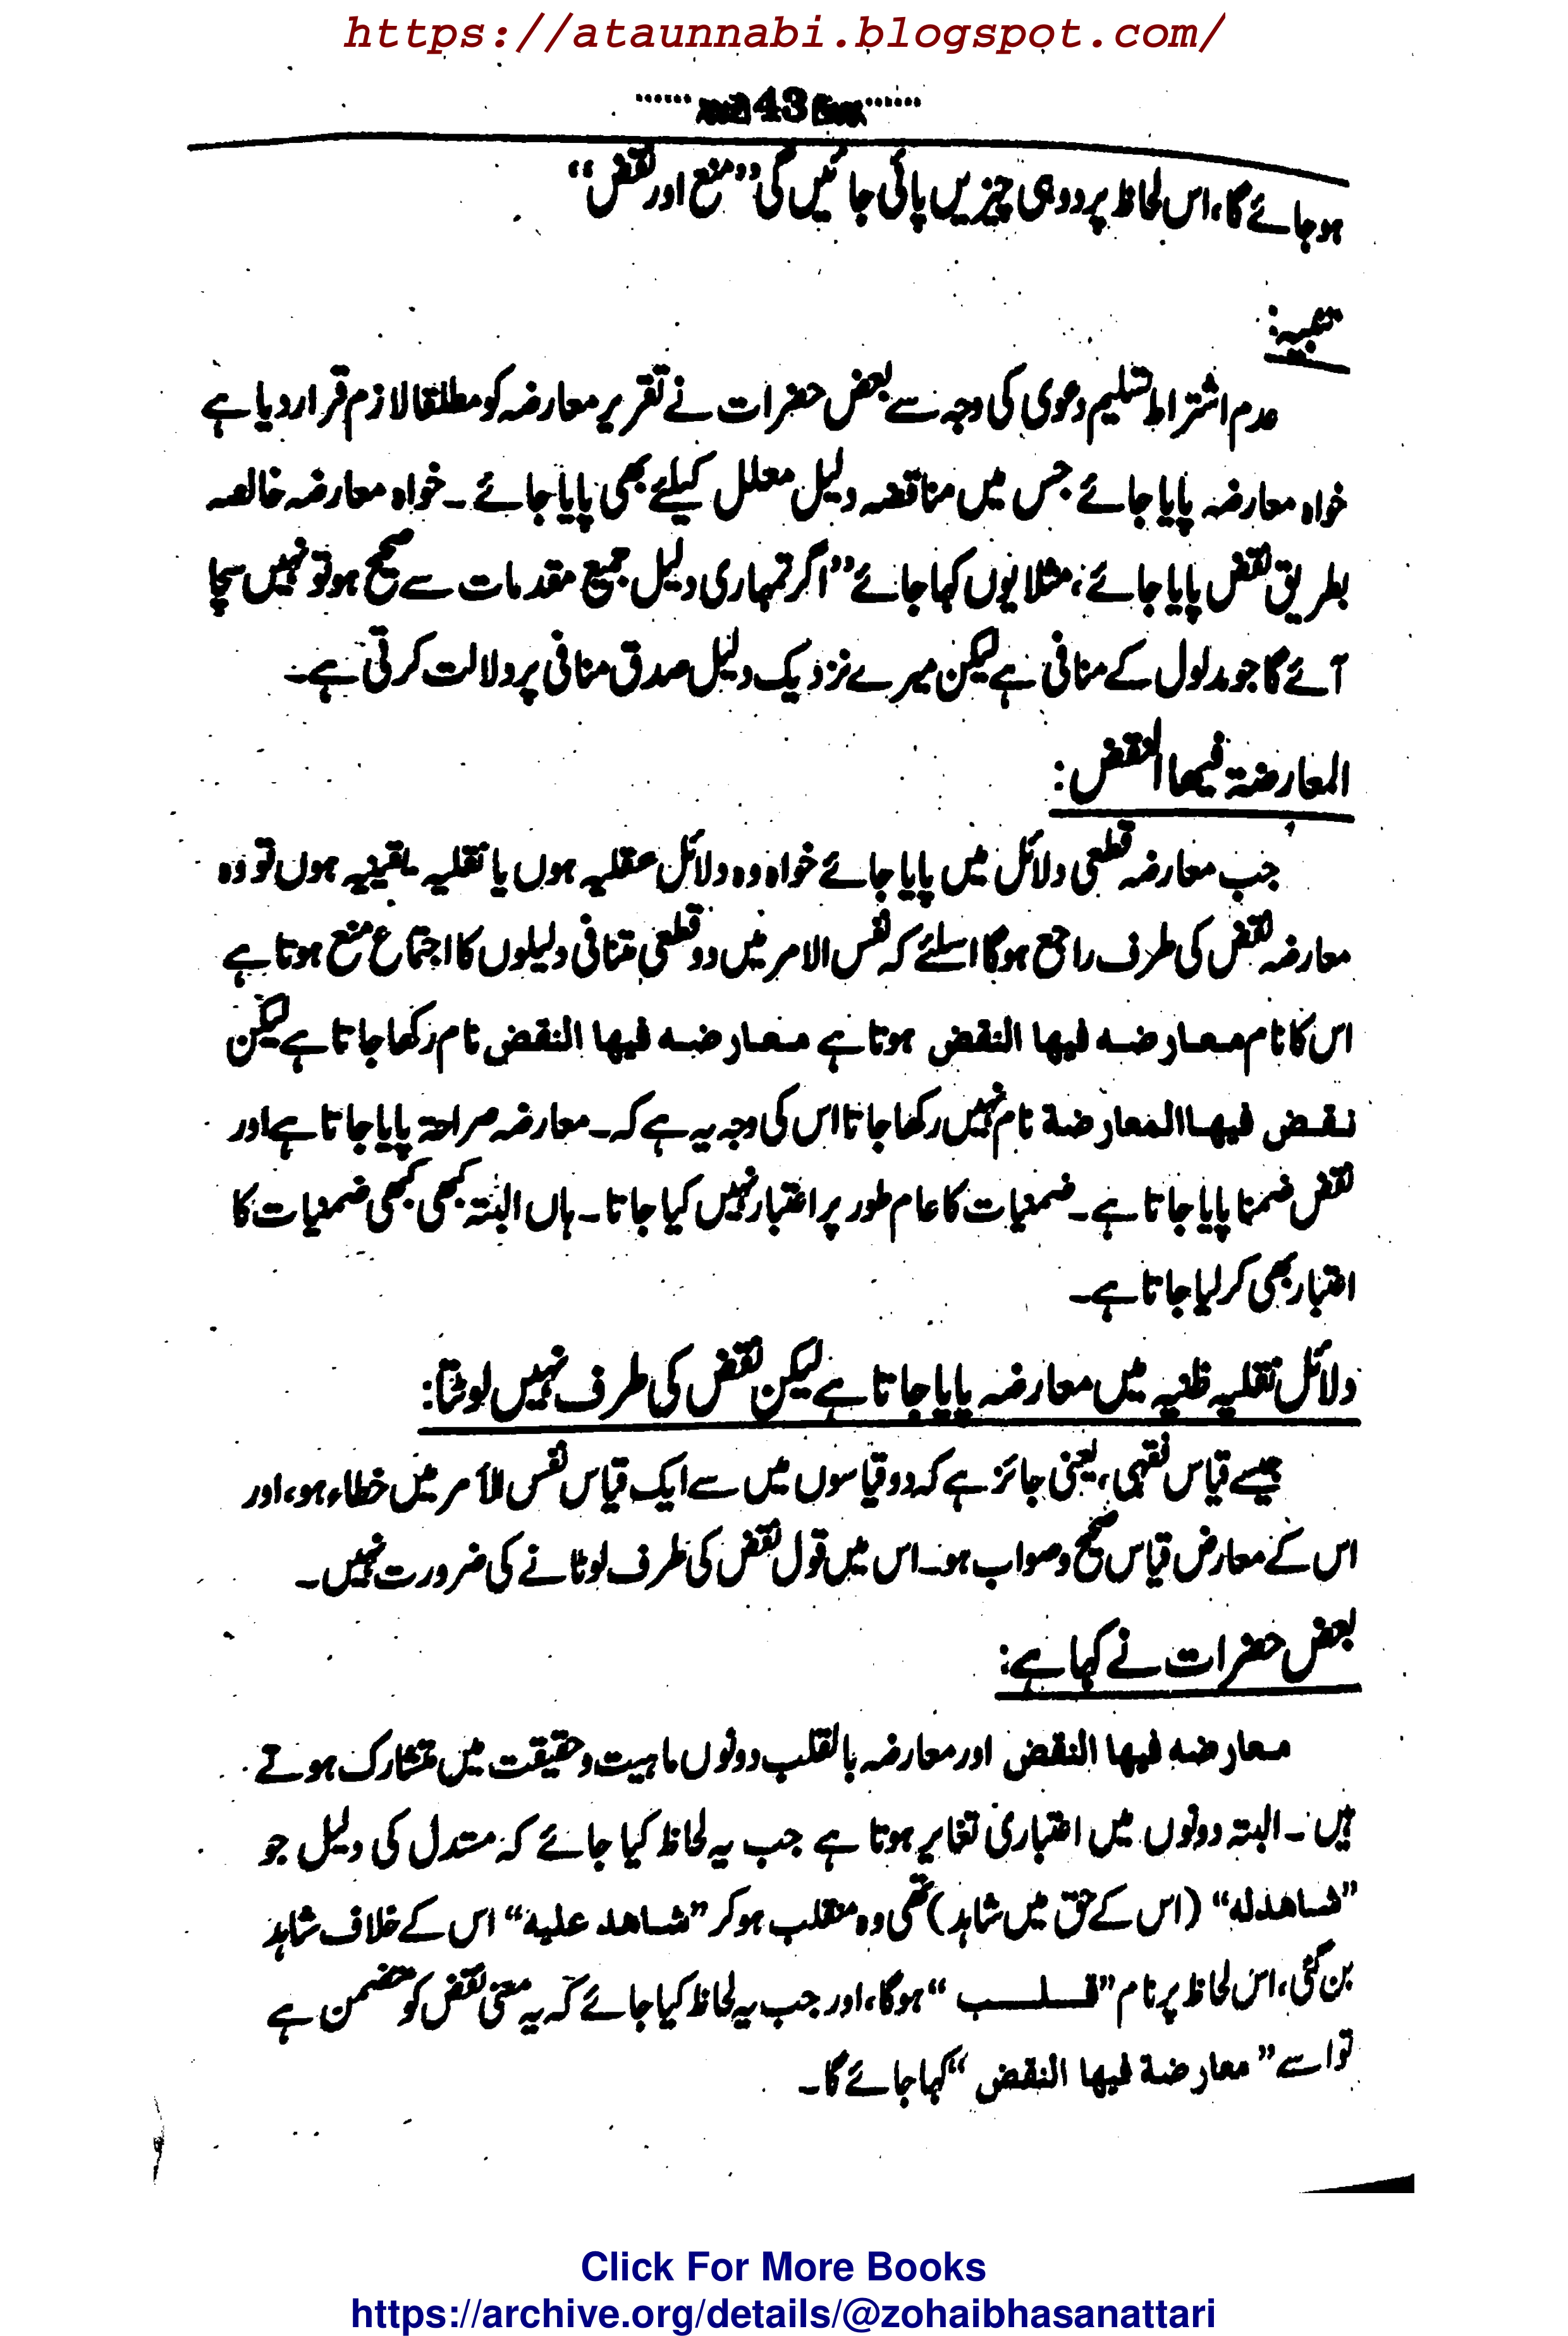 https://ataunnabi.blogspot.com/
43
ہوجائے گا، اس لحاظ پر دو ہی چیزیں پائی جائیں گی ”منع اور نقض“
تنبیہ:
عدم اشتراط تسلیم دعوی کی وجہ سے بعض حضرات نے تقریر معارضہ کو مطلقا لازم قرار دیا ہے
خواہ معارضہ پایا جائے جس میں مناقضہ دلیل معلل کیلئے بھی پایا جائے ۔ خواہ معارضہ خالصہ
بطریق نقض پایا جائے، مثلا یوں کہا جائے ”اگر تمہاری دلیل جمیع مقدمات سے صحیح ہو تو نہیں سچا
آئے گا جو مدلول کے منافی ہے لیکن میرے نزدیک دلیل صدق منافی پر دلالت کرتی ہے۔
المعارضۃ فیھا النقض:
جب معارضہ قطعی دلائل میں پایا جائے خواہ وہ دلائل عقلیہ ہوں یا نقلیہ یقینیہ ہوں تو وہ
معارضہ نقض کی طرف راجع ہوگا اسلئے کہ نفس الامر میں دو قطعی متنافی دلیلوں کا اجتماع منع ہوتا ہے
اس کا نام معارضه فیها النقض ہوتا ہے معارضه فیها النقض نام رکھا جاتا ہے لیکن
نقض فیها المعارضة نام نہیں رکھا جاتا اس کی وجہ یہ ہے کہ۔ معارضہ صراحۃ پایا جاتا ہے اور
نقض ضمنا پایا جاتا ہے۔ ضمنیات کا عام طور پر اعتبار نہیں کیا جاتا۔ ہاں البتہ کبھی کبھی ضمنیات کا
اعتبار بھی کرلیا جاتا ہے۔
دلائل نقلیہ ظنیہ میں معارضہ پایا جاتا ہے لیکن نقض کی طرف نہیں لوٹتا:
جیسے قیاس فقہی، یعنی جائز ہے کہ دو قیاسوں میں سے ایک قیاس نفس الأمر میں خطاء ہو، اور
اس کے معارض قیاس صحیح وصواب ہو۔ اس میں قول نقض کی طرف لوٹانے کی ضرورت نہیں۔
بعض حضرات نے کہا ہے:
معارضه فیها النقض اور معارضہ بالقلب دونوں ماہیت وحقیقت میں متشارک ہوتے
ہیں۔ البتہ دونوں میں اعتباری تغایر ہوتا ہے جب یہ لحاظ کیا جائے کہ مستدل کی دلیل جو
”شاهدله“ (اس کے حق میں شاہد) تھی وہ منقلب ہوکر ”شاهد علیه“ اس کے خلاف شاہد
بن گئی، اس لحاظ پر نام ”قلب“ ہوگا، اور جب یہ لحاظ کیا جائے کہ یہ معنی نقض کو متضمن ہے
تو اسے ”معارضة فیها النقض“ کہا جائے گا۔
Click For More Books
https://archive.org/details/@zohaibhasanattari